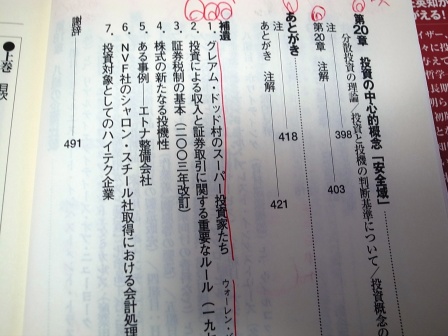 第20章 投資の中心的概念「安全域」
分散投資の理論/投資と投機の判断基準について/投資概念の
注 398
第20章 注解 403
あとがき
注 418
あとがき 注解 421
補遺
1．グレアム・ドッド村のスーパー投資家たち ウォーレン・
2．投資による収入と証券取引に関する重要なルール（一九
3．証券税制の基本（二〇〇三年改訂）
4．株式の新たなる投機性
5．ある事例――エトナ整備会社
6．NVF社のシャロン・スチール社取得における会計処理
7．投資対象としてのハイテク企業
謝辞 491
●上巻 目次